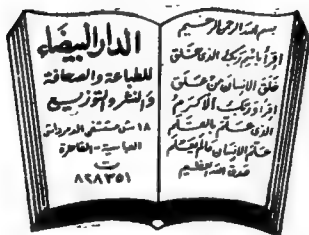 بسم الله الرحمن الرحيم
اقرأ باسم ربك الذي خلق
خلق الإنسان من علق
اقرأ وربك الأكرم
الذي علم بالقلم
علم الإنسان مالم يعلم
صدق الله العظيم
الدار البيضاء
للطباعة والصحافة
والنشر والتوزيع
١٨ ش مستشفى الدمرداش
العباسية - القاهرة
ت
٨٢٨٣٥١